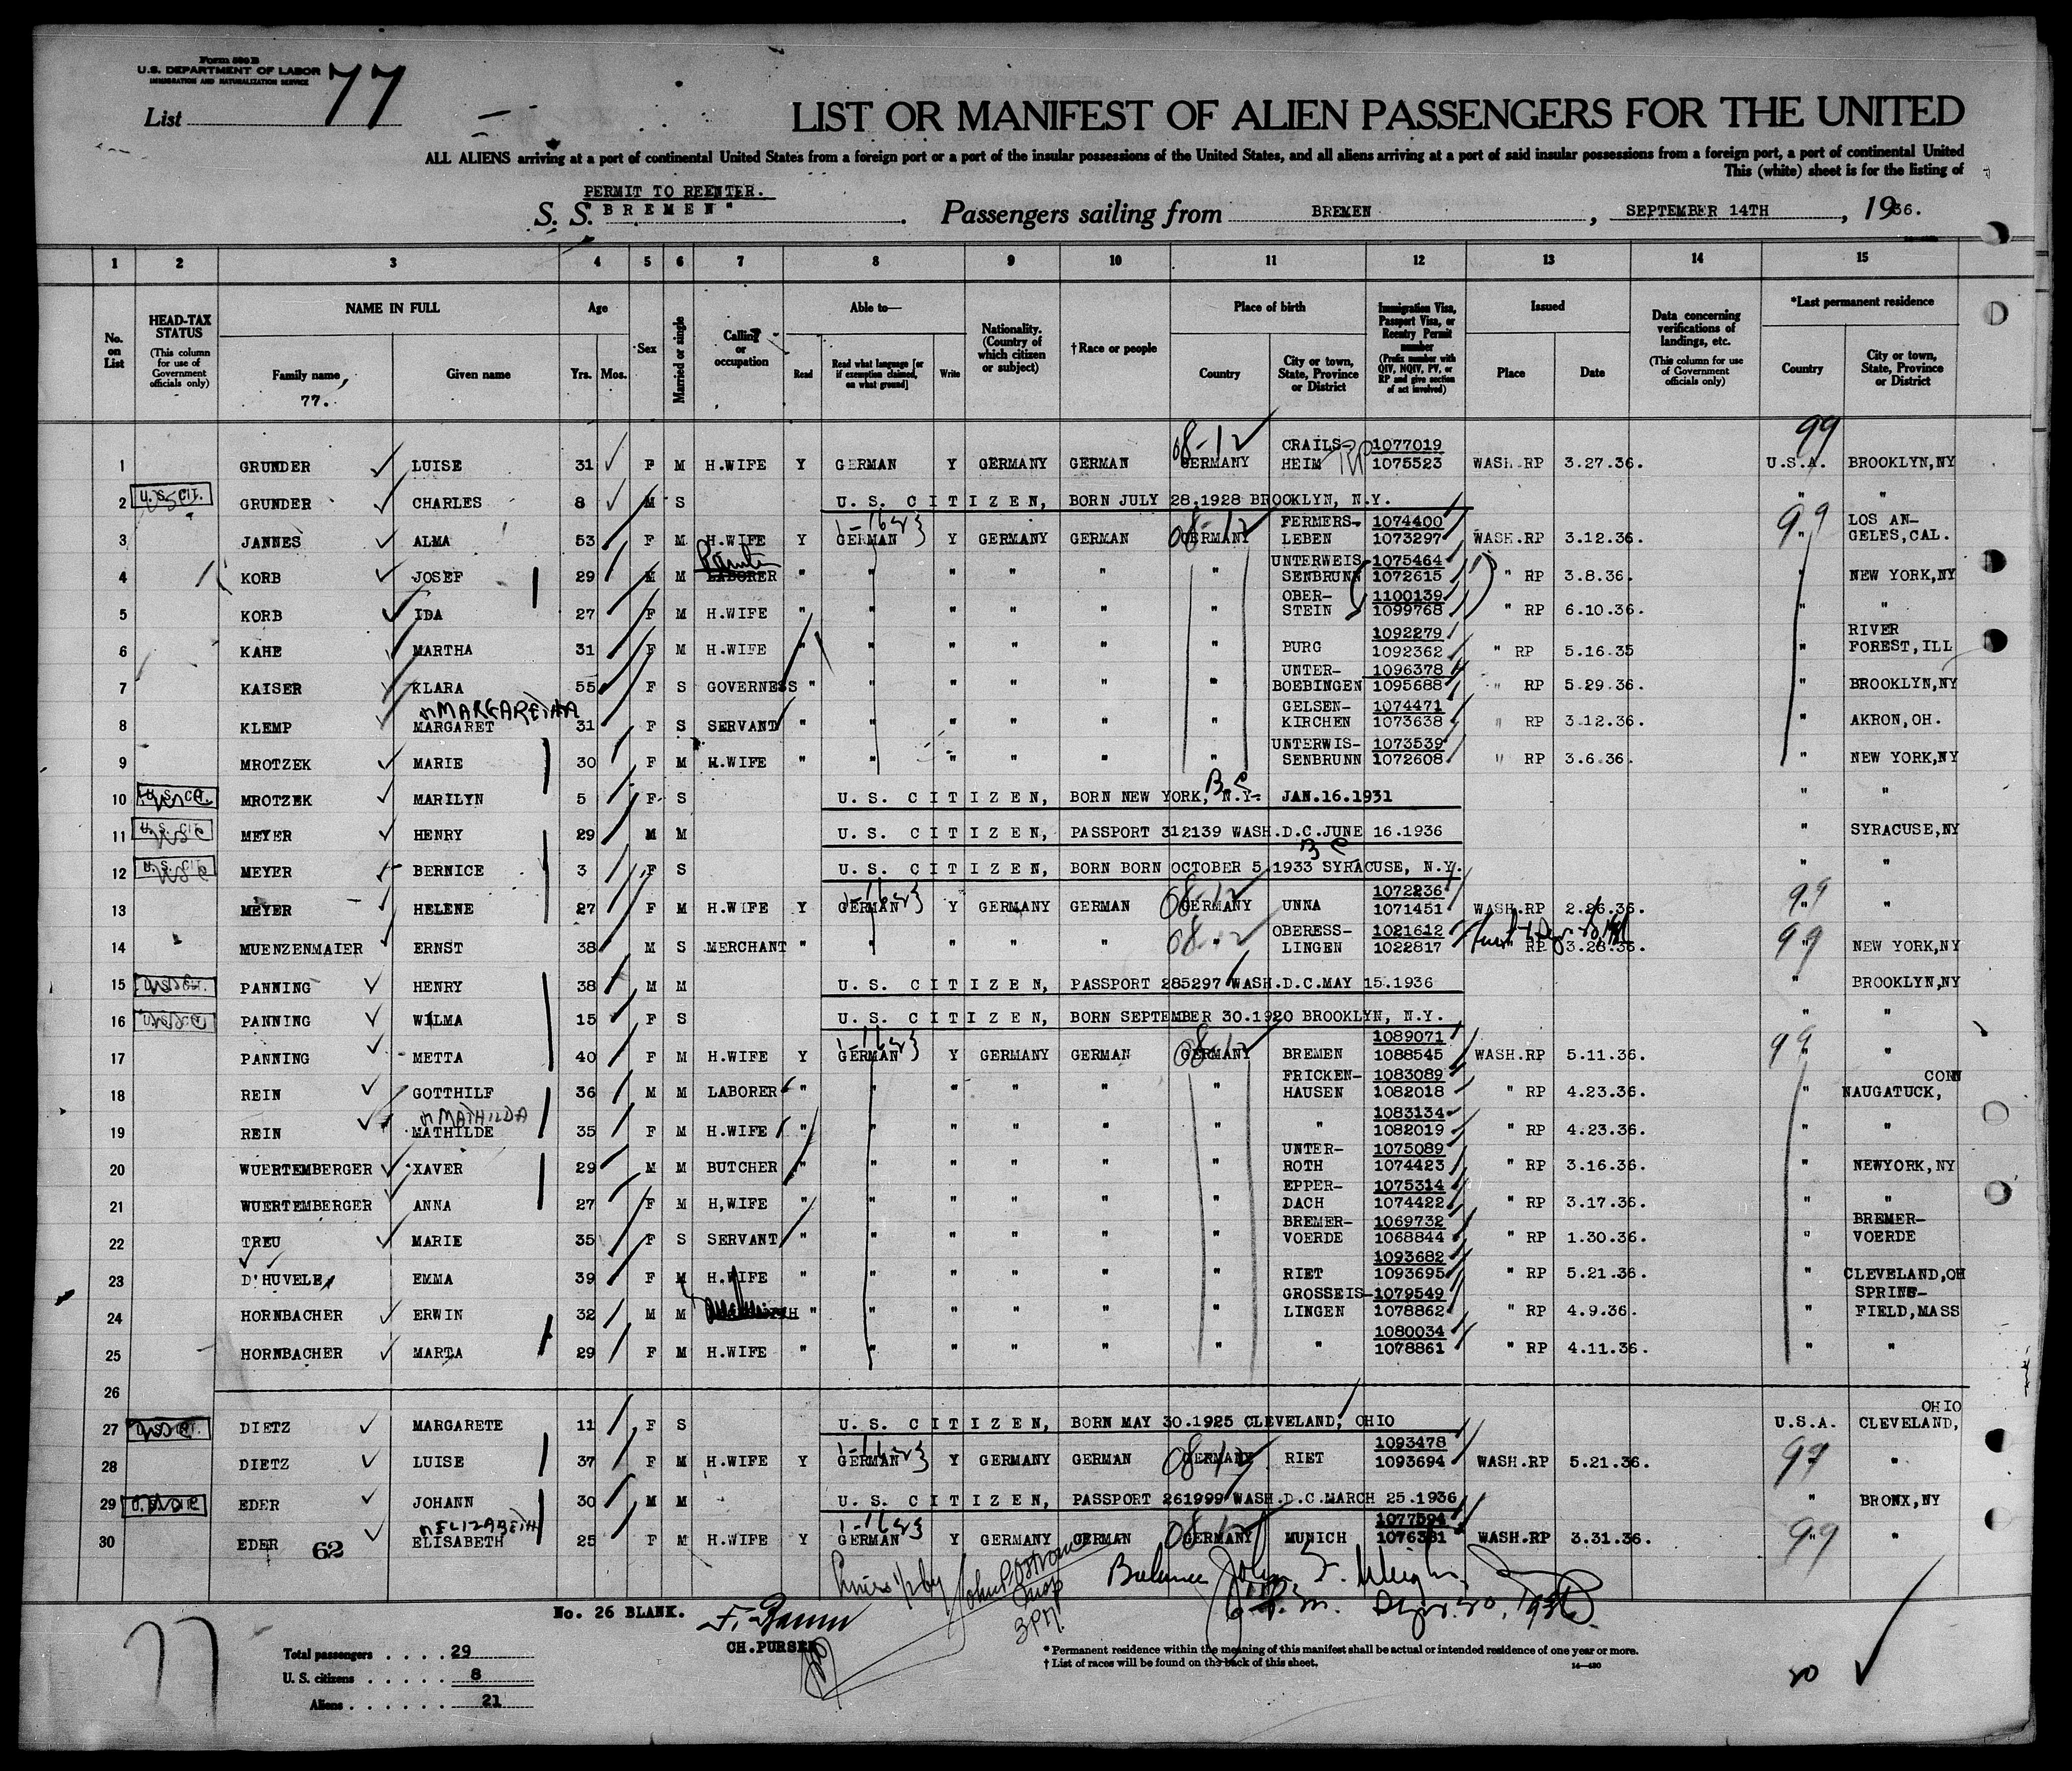 Form 500 B
U.S. DEPARTMENT OF LABOR
IMMIGRATION AND NATURALIZATION SERVICE
List 77
LIST OR MANIFEST OF ALIEN PASSENGERS FOR THE UNITED
ALL ALIENS arriving at a port of continental United States from a foreign port or a port of the insular possessions of the United States, and all aliens arriving at a port of said insular possessions from a foreign port, a port of continental United
This (white) sheet is for the listing of
PERMIT TO REENTER.
S. S. BREMEN" Passengers sailing from BREMEN, SEPTEMBER 14TH, 1936.
1 2 3 4 5 6 7 8 9 10 11 12 13 14 15
No. on List
HEAD-TAX STATUS (This column for use of Government officials only)
NAME IN FULL
Family name Given name
77.
Age Yrs. Mos.
Sex
Married or single
Calling or occupation
Able to—
Read Read what language [or if exemption claimed, on what ground] Write
Nationality. (Country of which citizen or subject)
†Race or people
Place of birth
Country City or town, State, Province or District
Immigration Visa, Passport Visa, or Reentry Permit number (Prefix number with QIV, NQIV, PV, or RP and give section of act involved)
Issued
Place Date
Data concerning verifications of landings, etc. (This column for use of Government officials only)
*Last permanent residence
Country City or town, State, Province or District
08-12 CRAILS- RP 1077019 99
1 GRUNDER LUISE 31 F M H.WIFE Y GERMAN Y GERMANY GERMAN GERMANY HEIM 1075523 WASH.RP 3.27.36. U.S.A. BROOKLYN,NY
2 U.S. CIT. GRUNDER CHARLES 8 M S U. S. CITIZEN, BORN JULY 28.1928 BROOKLYN, N.Y. " "
08-12 FERMERS- 1074400 99 LOS AN-
3 JANNES ALMA 53 F M H.WIFE Y GERMAN Y GERMANY GERMAN GERMANY LEBEN 1073297 WASH.RP 3.12.36. " GELES,CAL.
UNTERWEIS 1075464
4 KORB JOSEF 29 M M LABORER " " " " " " SENBRUNN 1072615 " RP 3.8.36. " NEW YORK,NY
OBER- 1100139
5 KORB IDA 27 F M H.WIFE " " " " " STEIN 1099768 " RP 6.10.36. " "
1092279 RIVER
6 KAHE MARTHA 31 F M H.WIFE " " " " " " BURG 1092362 " RP 5.16.35 " FOREST,ILL
UNTER- 1096378
7 KAISER KLARA 55 F S GOVERNESS " " " " " " BOEBINGEN 1095688 " RP 5.29.36. " BROOKLYN,NY
MARGARETHA GELSEN- 1074471
8 KLEMP MARGARET 31 F S SERVANT " " " " " " KIRCHEN 1073638 " RP 3.12.36. " AKRON,OH.
UNTERWIS- 1073539
9 MROTZEK MARIE 30 F M H.WIFE " " " " " " SENBRUNN 1072608 " RP 3.6.36. " NEW YORK,NY
B.C.
10 MROTZEK MARILYN 5 F S U. S. CITIZEN, BORN NEW YORK, N.Y. JAN.16.1931 " "
11 MEYER HENRY 29 M M U. S. CITIZEN, PASSPORT 312139 WASH.D.C.JUNE 16.1936 " SYRACUSE,NY
12 MEYER BERNICE 3 F S U. S. CITIZEN, BORN BORN OCTOBER 5.1933 SYRACUSE, N.Y. " "
08-12 1072236 99
13 MEYER HELENE 27 F M H.WIFE Y GERMAN Y GERMANY GERMAN GERMANY UNNA 1071451 WASH.RP 2.26.36. " "
08-12 OBERESS- 1021612 99
14 MUENZENMAIER ERNST 38 M S MERCHANT " " " " " " LINGEN 1022817 " RP 3.28.36. NEW YORK,NY
15 PANNING HENRY 38 M M U. S. CITIZEN, PASSPORT 285297 WASH.D.C.MAY 15.1936 " BROOKLYN,NY
16 PANNING WILMA 15 F S U. S. CITIZEN, BORN SEPTEMBER 30.1920 BROOKLYN, N.Y. " "
08-12 1089071 99
17 PANNING METTA 40 F M H.WIFE Y GERMAN Y GERMANY GERMAN GERMANY BREMEN 1088545 WASH.RP 5.11.36. "
FRICKEN- 1083089 CONN
18 REIN GOTTHILF 36 M M LABORER " " " " " " HAUSEN 1082018 " RP 4.23.36. " NAUGATUCK,
MATHILDA 1083134
19 REIN MATHILDE 35 F M H.WIFE " " " " " " " 1082019 " RP 4.23.36. " "
UNTER- 1075089
20 WUERTEMBERGER XAVER 29 M M BUTCHER " " " " " " ROTH 1074423 " RP 3.16.36. " NEWYORK,NY
EPPER- 1075314
21 WUERTEMBERGER ANNA 27 F M H,WIFE " " " " " " DACH 1074422 " RP 3.17.36. " "
BREMER- 1069732 BREMER-
22 TREU MARIE 35 F S SERVANT " " " " " " VOERDE 1068844 " RP 1.30.36. " VOERDE
1093682
23 D'HUVELE EMMA 39 F M H.WIFE " " " " " " RIET 1093695 " RP 5.21.36. " CLEVELAND,OH
GROSSEIS- 1079549 SPRING-
24 HORNBACHER ERWIN 32 M M " " " " " " LINGEN 1078862 " RP 4.9.36. " FIELD,MASS
1080034
25 HORNBACHER MARTA 29 F M H.WIFE " " " " " " " 1078861 " RP 4.11.36. " "
26
OHIO
27 DIETZ MARGARETE 11 F S U. S. CITIZEN, BORN MAY 30.1925 CLEVELAND, OHIO U.S.A. CLEVELAND,
08-12 1093478
28 DIETZ LUISE 37 F M H.WIFE Y GERMAN Y GERMANY GERMAN GERMANY RIET 1093694 WASH.RP 5.21.36. 99 "
29 EDER JOHANN 30 M M U. S. CITIZEN, PASSPORT 261999 WASH.D.C.MARCH 25.1936 " BRONX,NY
ELIZABETH 08-12 1077594
30 EDER 62 ELISABETH 25 F M H.WIFE Y GERMAN Y GERMANY GERMAN GERMANY MUNICH 1076381 WASH.RP 3.31.36. 99 "
No. 26 BLANK.
CH.PURSER
3 PM
77
Total passengers 29
U. S. citizens 8
Aliens 21
* Permanent residence within the meaning of this manifest shall be actual or intended residence of one year or more.
† List of races will be found on the back of this sheet.